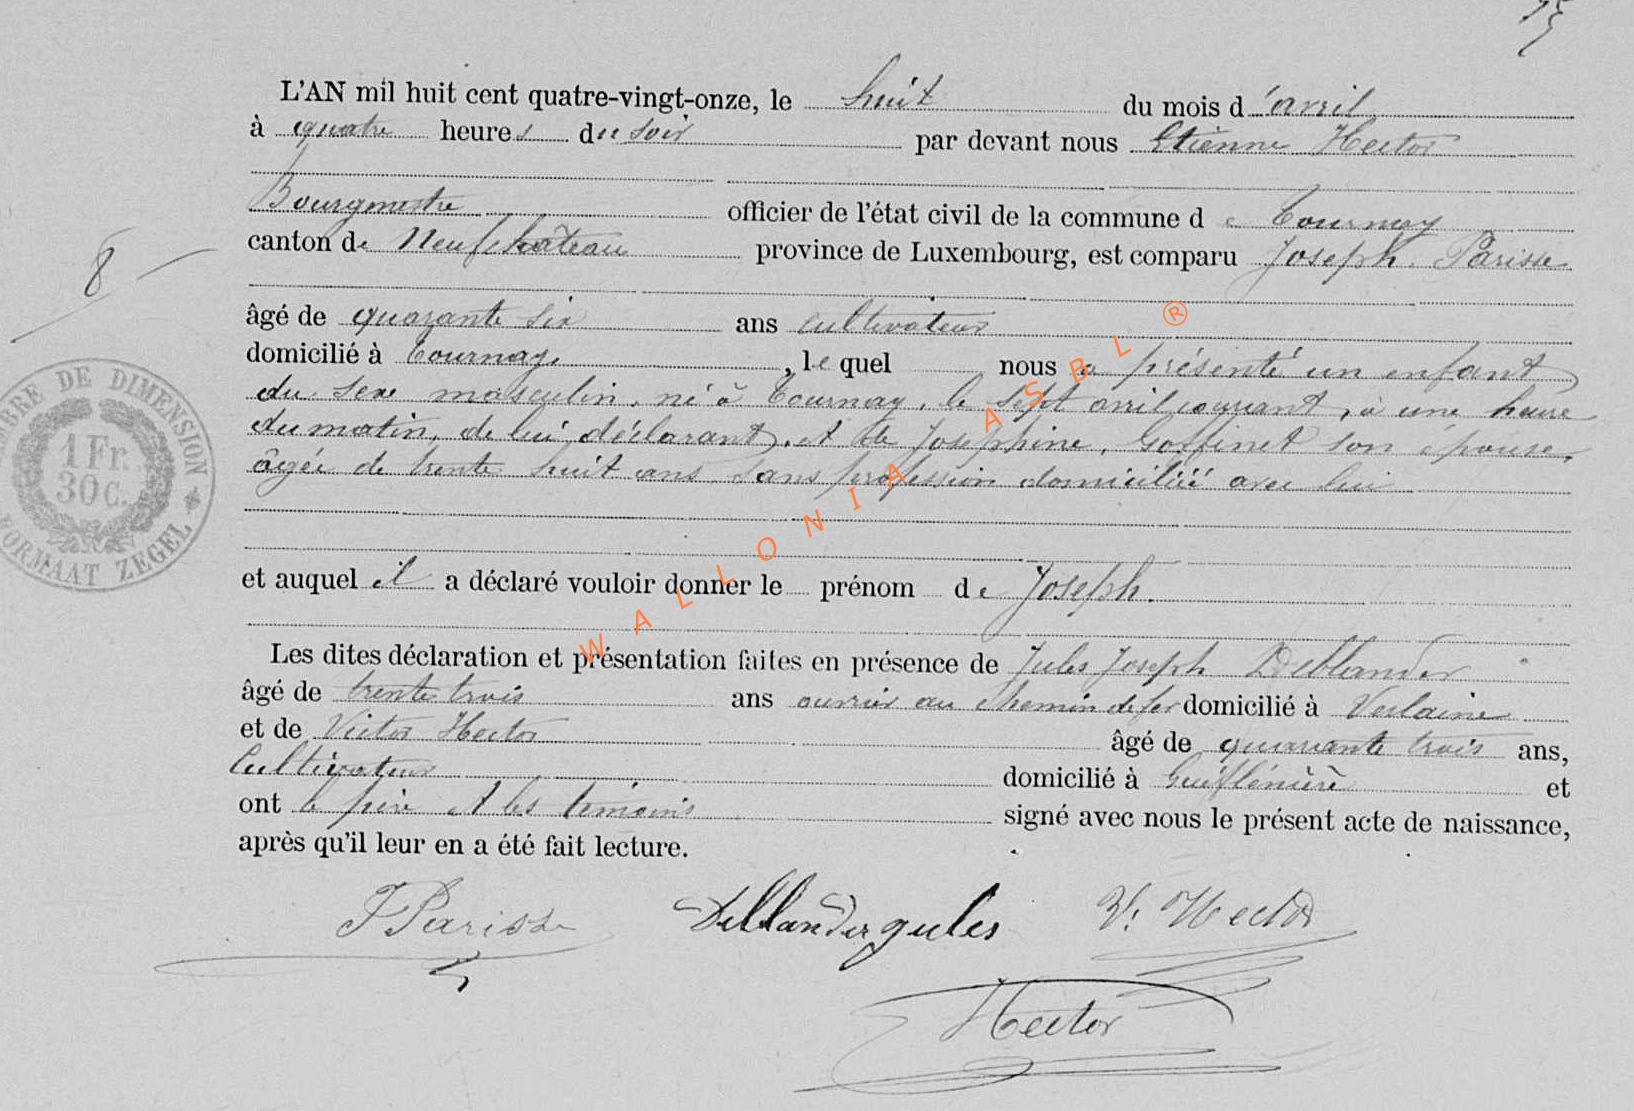 L'AN mil huit cent quatre-vingt-onze, le huit du mois d'avril
à quatre heures du soir par devant nous Etienne Hector
Bourgmestre officier de l'état civil de la commune de Tournay
canton de Neufchâteau province de Luxembourg, est comparu Joseph Parisse
âgé de quarante six ans cultivateur
domicilié à Tournay, lequel nous a présenté un enfant
du sexe masculin, né à Tournay, le sept avril courant, à une heure
du matin, de lui déclarant, et de Joséphine Goffinet son épouse,
âgée de trente huit ans sans profession domiciliée avec lui
et auquel il a déclaré vouloir donner le prénom de Joseph.
Les dites déclaration et présentation faites en présence de Jules Joseph
âgé de trente trois ans ouvrier au chemin de fer domicilié à Verlaine
et de Victor Hector âgé de quarante trois ans,
Cultivateur domicilié à et
ont le père et les témoins signé avec nous le présent acte de naissance,
après qu'il leur en a été fait lecture.
J Parisse Jules V. Hector
Hector
8
TIMBRE DE DIMENSION
1 Fr.
30 C.
FORMAAT ZEGEL
WALLONIA ASBL ®